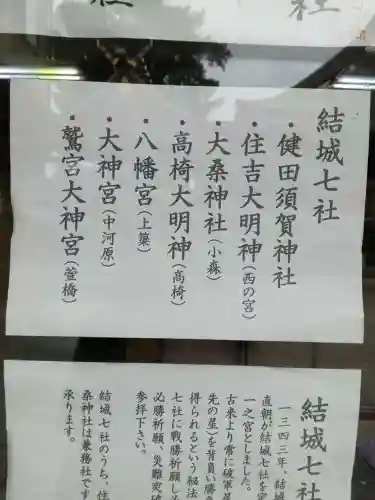 結城七社
・健田須賀神社
・住吉大明神(西の宮)
・大桑神社(小森)
・高椅大明神(高椅)
・八幡宮(上簗)
・大神宮(中河原)
・鷲宮大神宮(萱橋)
結城七社
一三四三年、結城
直朝が結城七社を
一之宮としました。
古来より常に破軍
先の星)を背負い勝
得られるという秘法
七社に戦勝祈願し
必勝祈願、災難突破
参拝下さい。
結城七社のうち、住
桑神社は兼務社です
承ります。